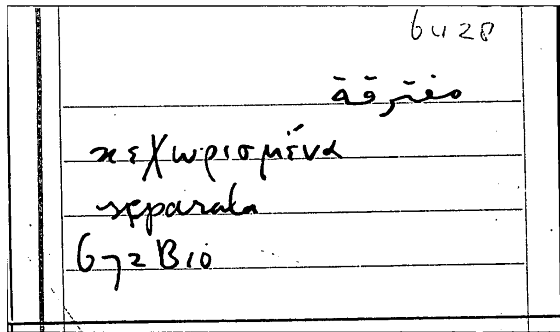 6428
مفترقة
κεχωρισμένα
separata
672B10